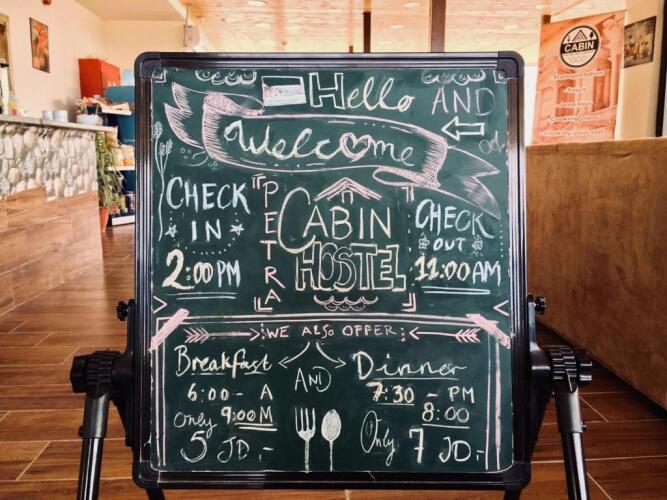 Hello AND
Welcome
CHECK
IN
2:00PM
PETRA
CABIN
HOSTEL
CHECK
OUT
11:00AM
WE ALSO OFFER:
Breakfast
6:00 - A
9:00 M
Only
5 JD,-
AND
Dinner
7:30 - PM
8:00
Only 7 JD,-
CABIN
-Transportation
-Tours